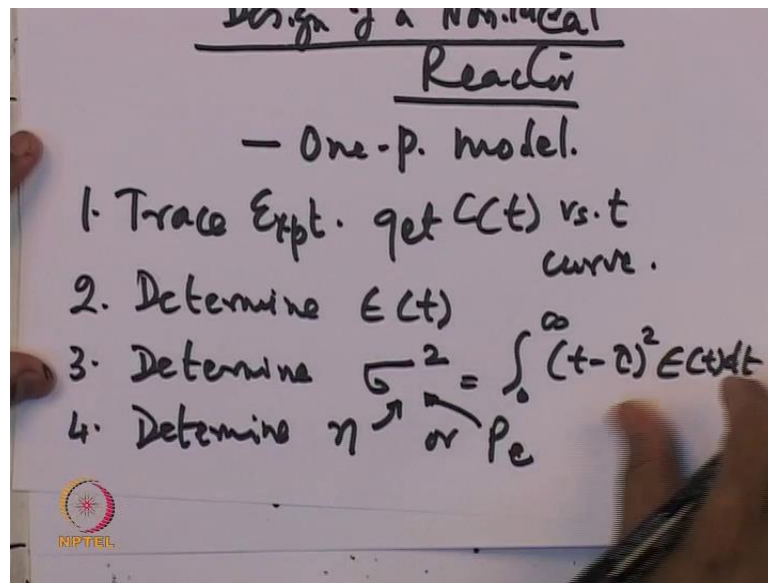 Design of a Nonideal
Reactor
- One-p. model.
1. Trace Expt. get C(t) vs. t
curve.
2. Determine E(t)
3. Determine σ² = ∫₀^∞ (t-τ)² E(t)dt
4. Determine n or Pe
NPTEL